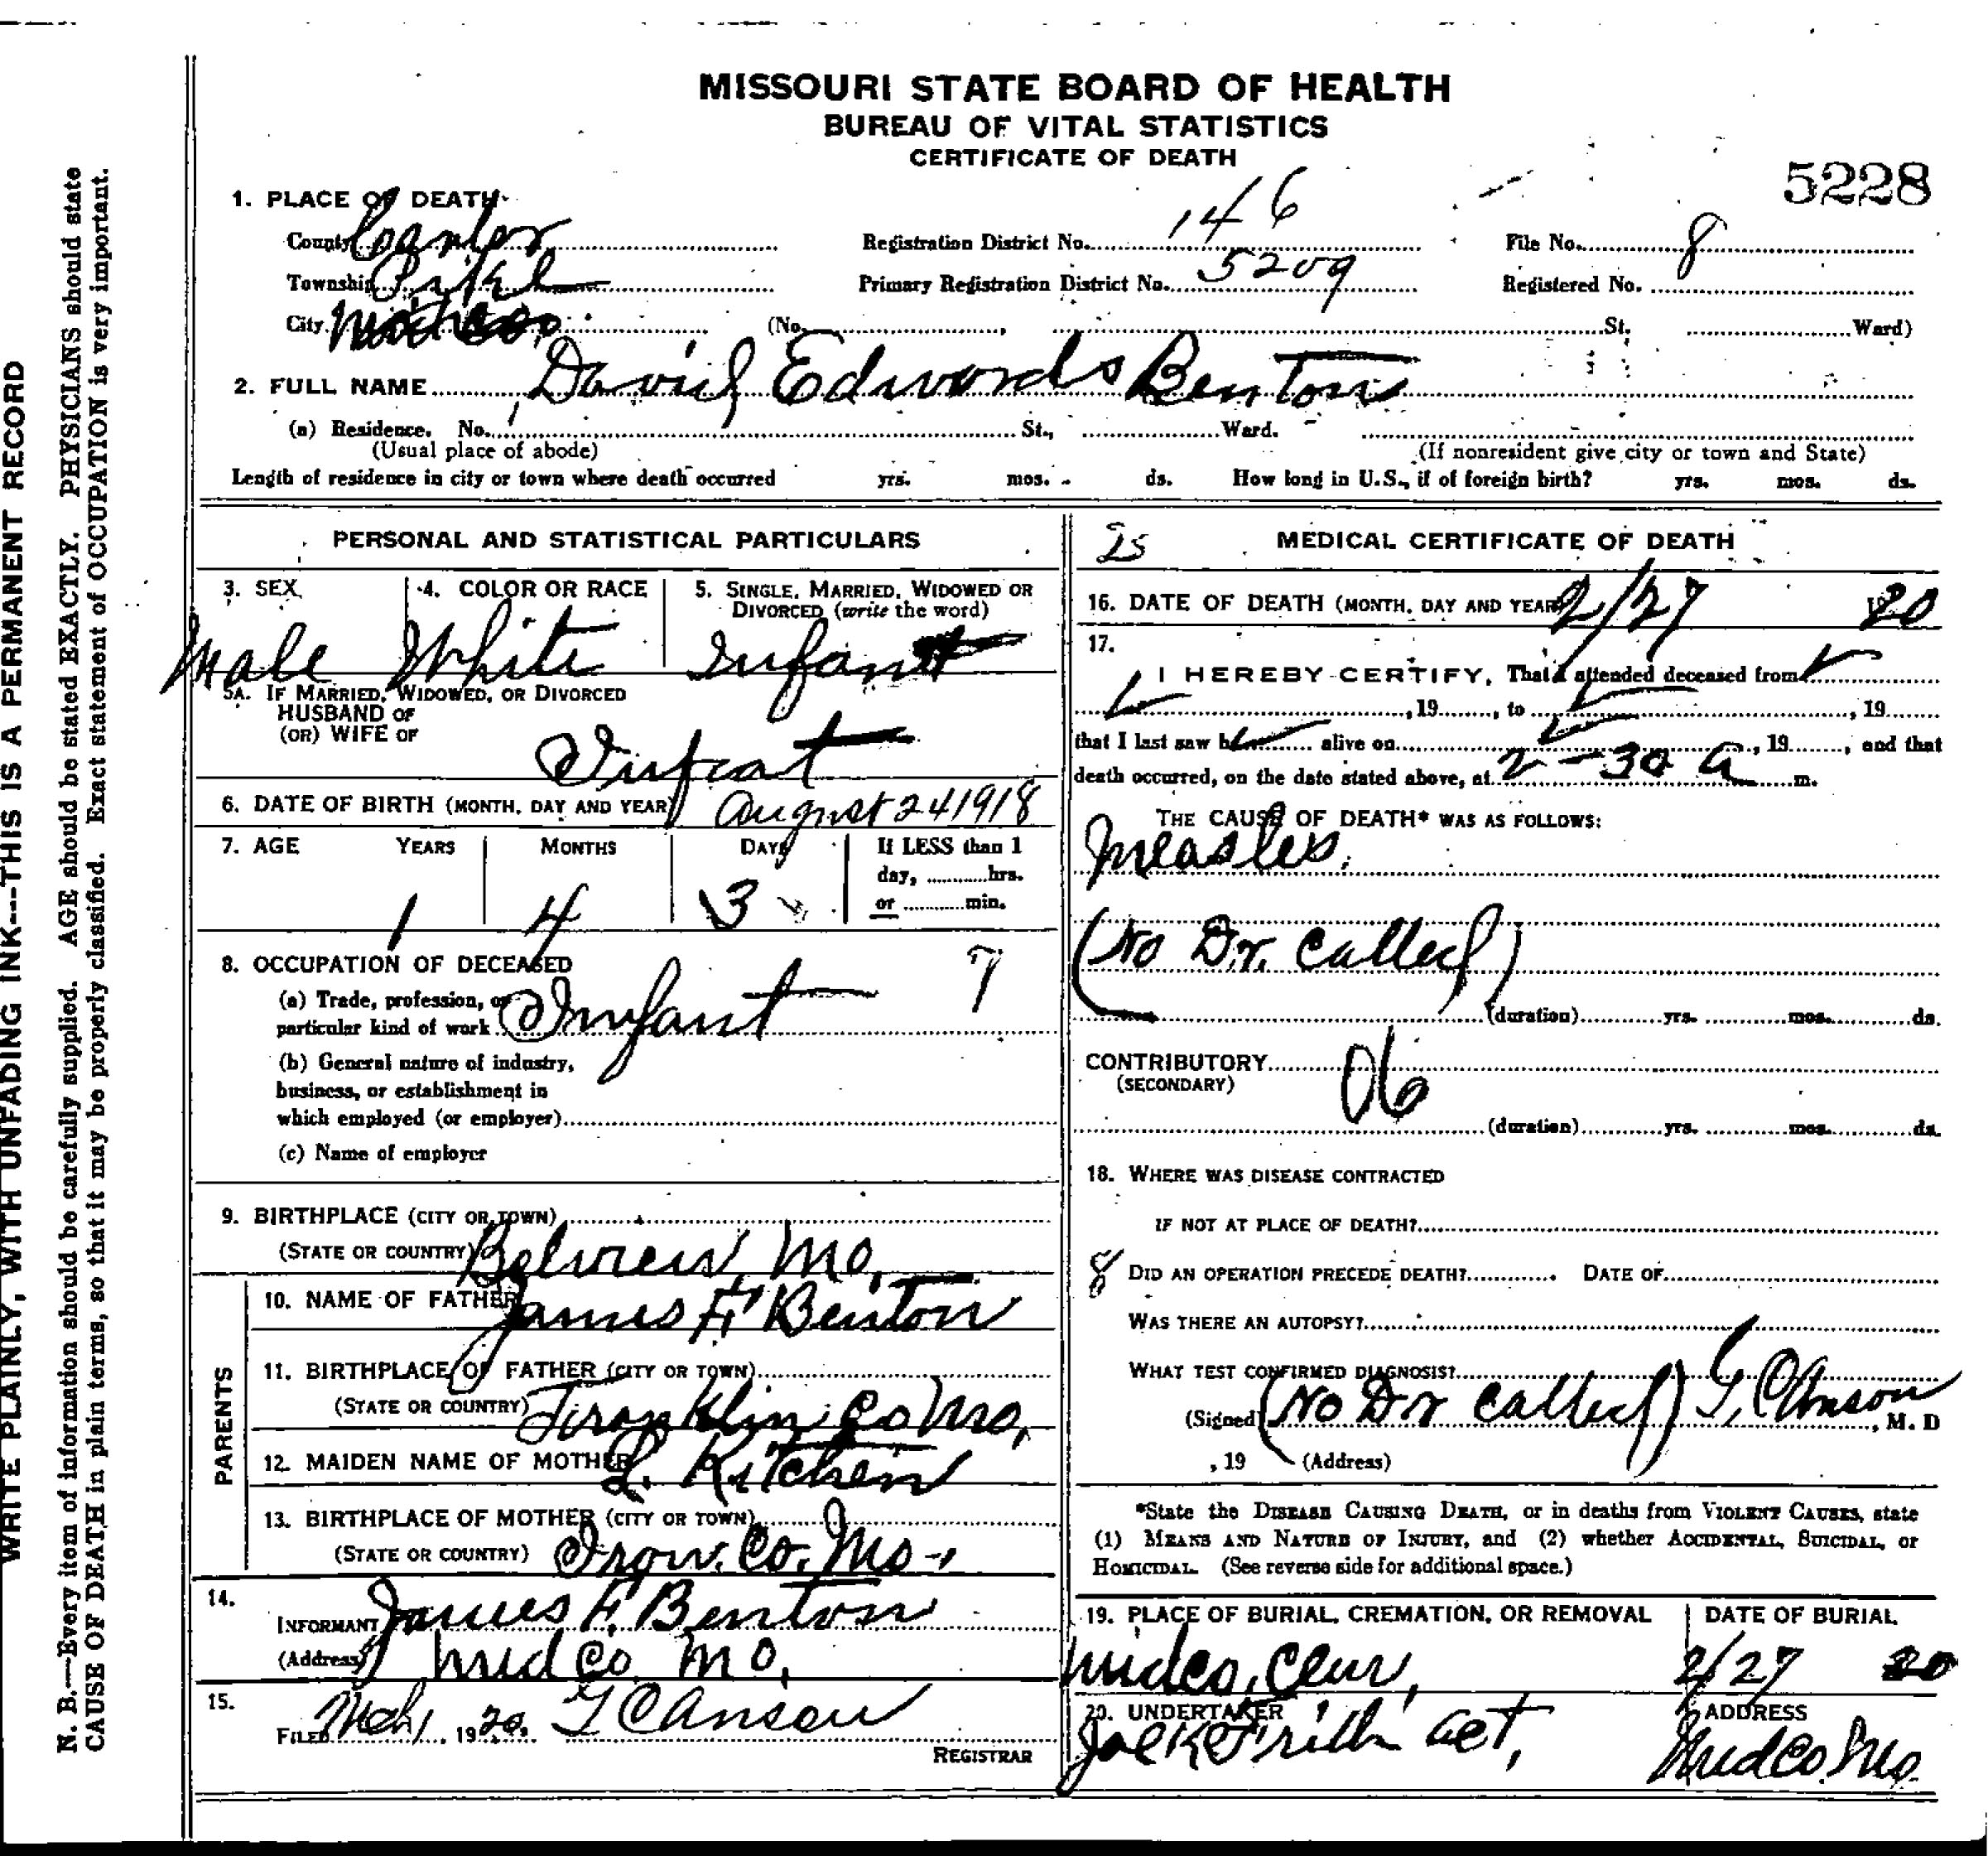 MISSOURI STATE BOARD OF HEALTH
BUREAU OF VITAL STATISTICS
CERTIFICATE OF DEATH
5228
1. PLACE OF DEATH
County Carter Registration District No. 146 File No. 8
Township Pike Primary Registration District No. 5209 Registered No.
City (No. , St. Ward)
2. FULL NAME David Edwards Benton
(a) Residence. No. St., Ward.
(Usual place of abode) (If nonresident give city or town and State)
Length of residence in city or town where death occurred yrs. mos. ds. How long in U.S., if of foreign birth? yrs. mos. ds.
PERSONAL AND STATISTICAL PARTICULARS
3. SEX 4. COLOR OR RACE 5. SINGLE, MARRIED, WIDOWED OR
DIVORCED (write the word)
Male White Infant
5A. IF MARRIED, WIDOWED, OR DIVORCED
HUSBAND OF
(OR) WIFE OF
Infant
6. DATE OF BIRTH (MONTH, DAY AND YEAR) August 24 1918
7. AGE YEARS MONTHS DAYS If LESS than 1
day, hrs.
or min.
1 4 3
8. OCCUPATION OF DECEASED 7
(a) Trade, profession, or
particular kind of work Infant
(b) General nature of industry,
business, or establishment in
which employed (or employer)
(c) Name of employer
9. BIRTHPLACE (CITY OR TOWN)
(STATE OR COUNTRY) Belview, Mo,
PARENTS
10. NAME OF FATHER James F. Benton
11. BIRTHPLACE OF FATHER (CITY OR TOWN)
(STATE OR COUNTRY) Franklin Co Mo,
12. MAIDEN NAME OF MOTHER L. Kitchen
13. BIRTHPLACE OF MOTHER (CITY OR TOWN)
(STATE OR COUNTRY) Iron. Co. Mo-,
14.
INFORMANT James F. Benton
(Address) Midco Mo,
15.
FILED Mch 1, 1920. T C Anson
REGISTRAR
25 MEDICAL CERTIFICATE OF DEATH
16. DATE OF DEATH (MONTH, DAY AND YEAR) 2/27 1920
17.
I HEREBY CERTIFY, That I attended deceased from
, 19 , to , 19
that I last saw h alive on , 19 , and that
death occurred, on the date stated above, at 2-30 a m.
THE CAUSE OF DEATH* WAS AS FOLLOWS:
Measles.
(No Dr. Called)
(duration) yrs. mos. ds.
CONTRIBUTORY 06
(SECONDARY)
(duration) yrs. mos. ds.
18. WHERE WAS DISEASE CONTRACTED
IF NOT AT PLACE OF DEATH?
8 DID AN OPERATION PRECEDE DEATH? DATE OF
WAS THERE AN AUTOPSY?
WHAT TEST CONFIRMED DIAGNOSIS?
(Signed) (No Dr Called) T. C Anson, M. D
, 19 (Address)
*State the DISEASE CAUSING DEATH, or in deaths from VIOLENT CAUSES, state
(1) MEANS AND NATURE OF INJURY, and (2) whether ACCIDENTAL, SUICIDAL, or
HOMICIDAL. (See reverse side for additional space.)
19. PLACE OF BURIAL, CREMATION, OR REMOVAL DATE OF BURIAL
Midco, Cem, 2/27 20
20. UNDERTAKER ADDRESS
Midco Mo.
WRITE PLAINLY, WITH UNFADING INK---THIS IS A PERMANENT RECORD
N. B.—Every item of information should be carefully supplied. AGE should be stated EXACTLY. PHYSICIANS should state
CAUSE OF DEATH in plain terms, so that it may be properly classified. Exact statement of OCCUPATION is very important.